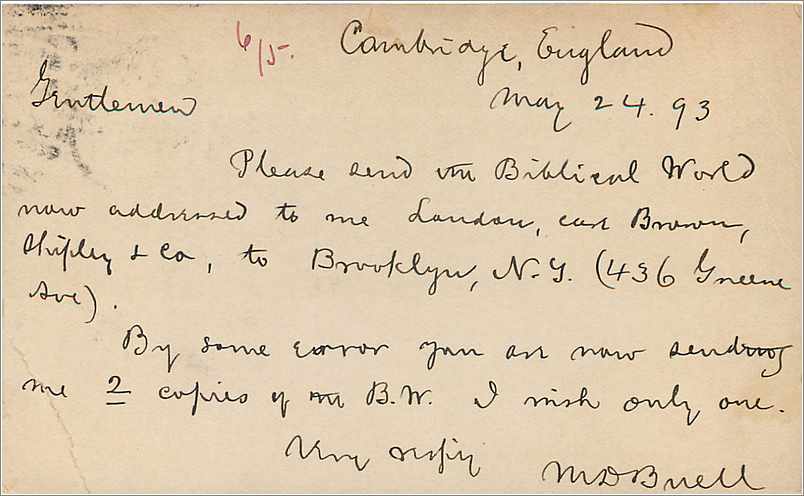 6/5. Cambridge, England
Gentlemen May 24. 93
Please send the Biblical World
now addressed to me London, care Brown,
Shipley & Co, to Brooklyn, N.Y. (436 Greene
Ave).
By some error you are now sending
me 2 copies of the B.W. I wish only one.
Very respy
M D Buell